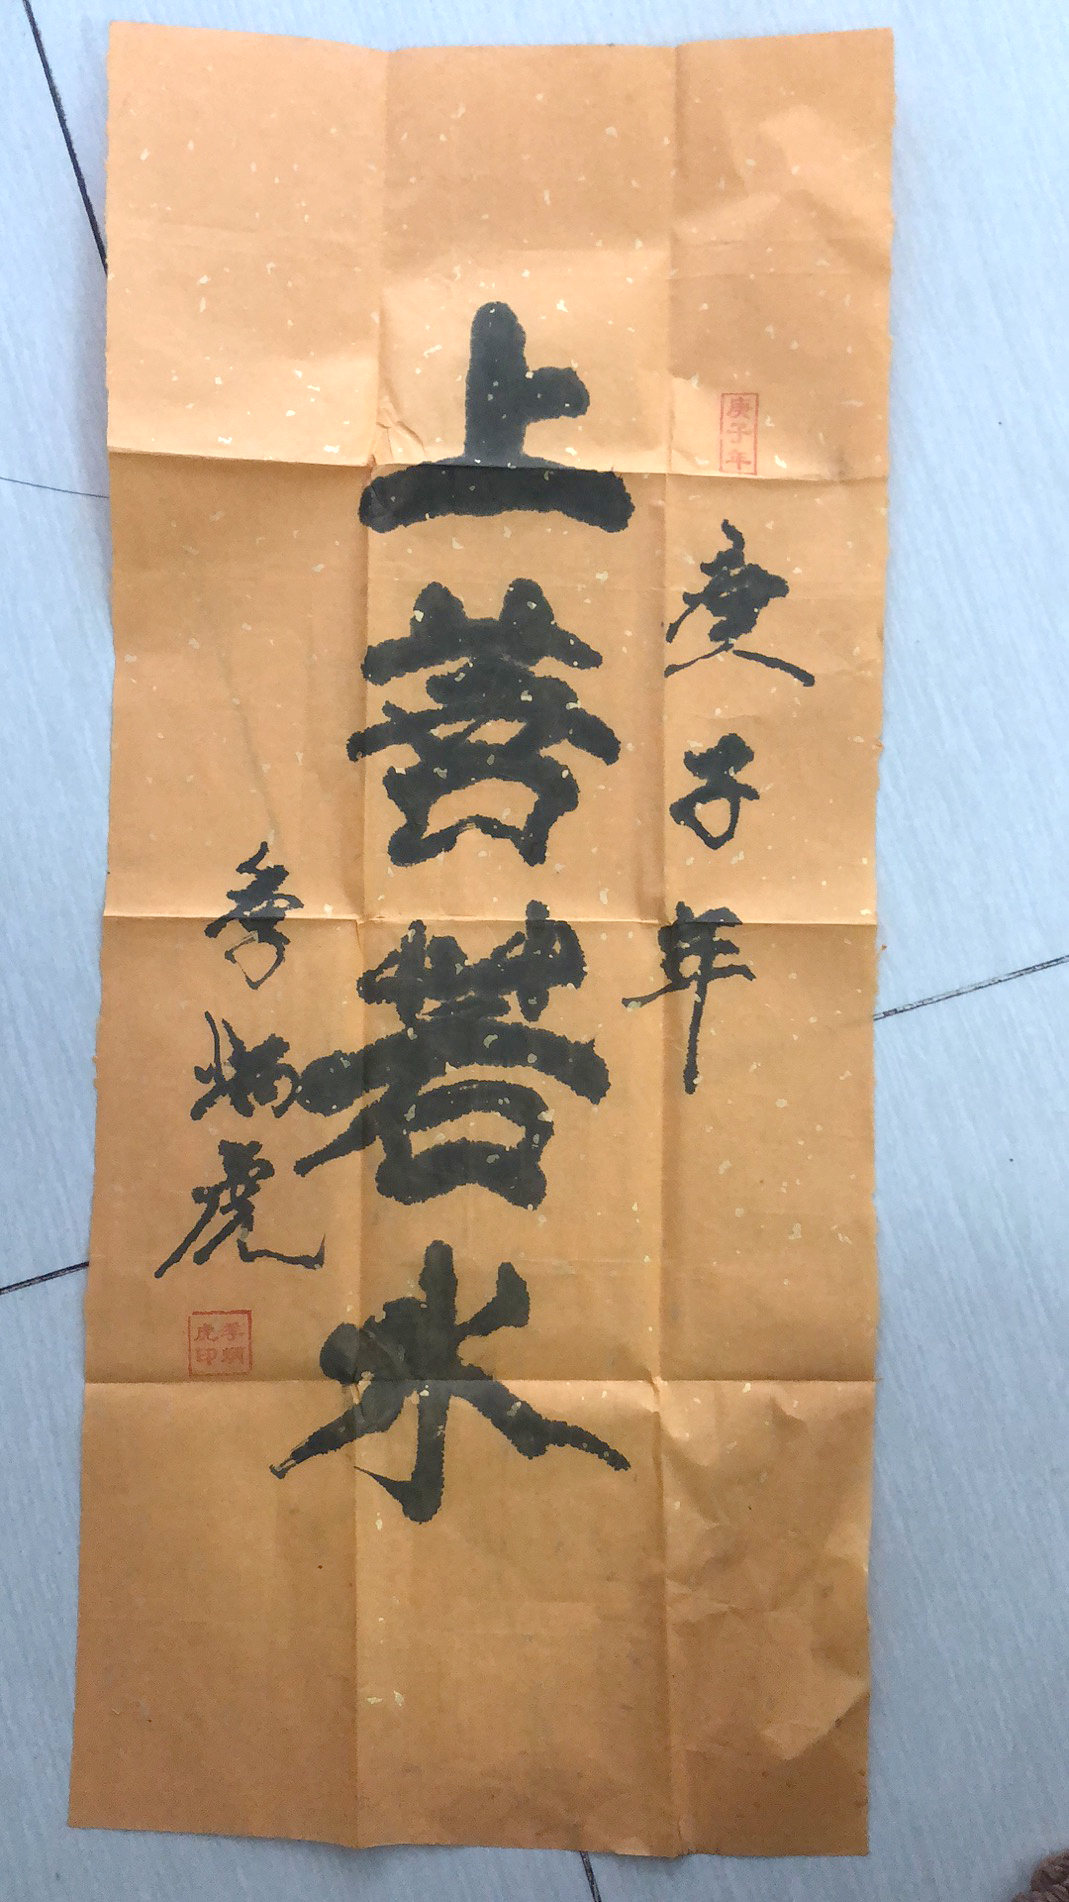 庚子年
庚子年
上善若水
季炳虎
季炳虎印